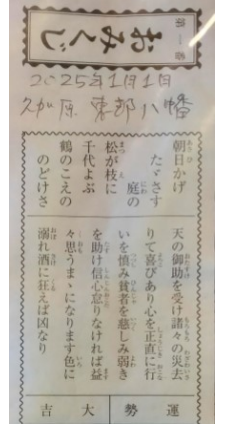 第一番
おみくじ
2025年1月1日
久加原 東部八幡
朝日かげ
たゞさす
庭の
松が枝に
千代よぶ
鶴のこえの
のどけさ
天の御助を受け諸々の災去
りて喜びあり心を正直に行
いを慎み貧者を慈しみ弱き
を助け信心怠りなければ益
々思うまゝになります色に
溺れ酒に狂えば凶なり
運勢
大吉